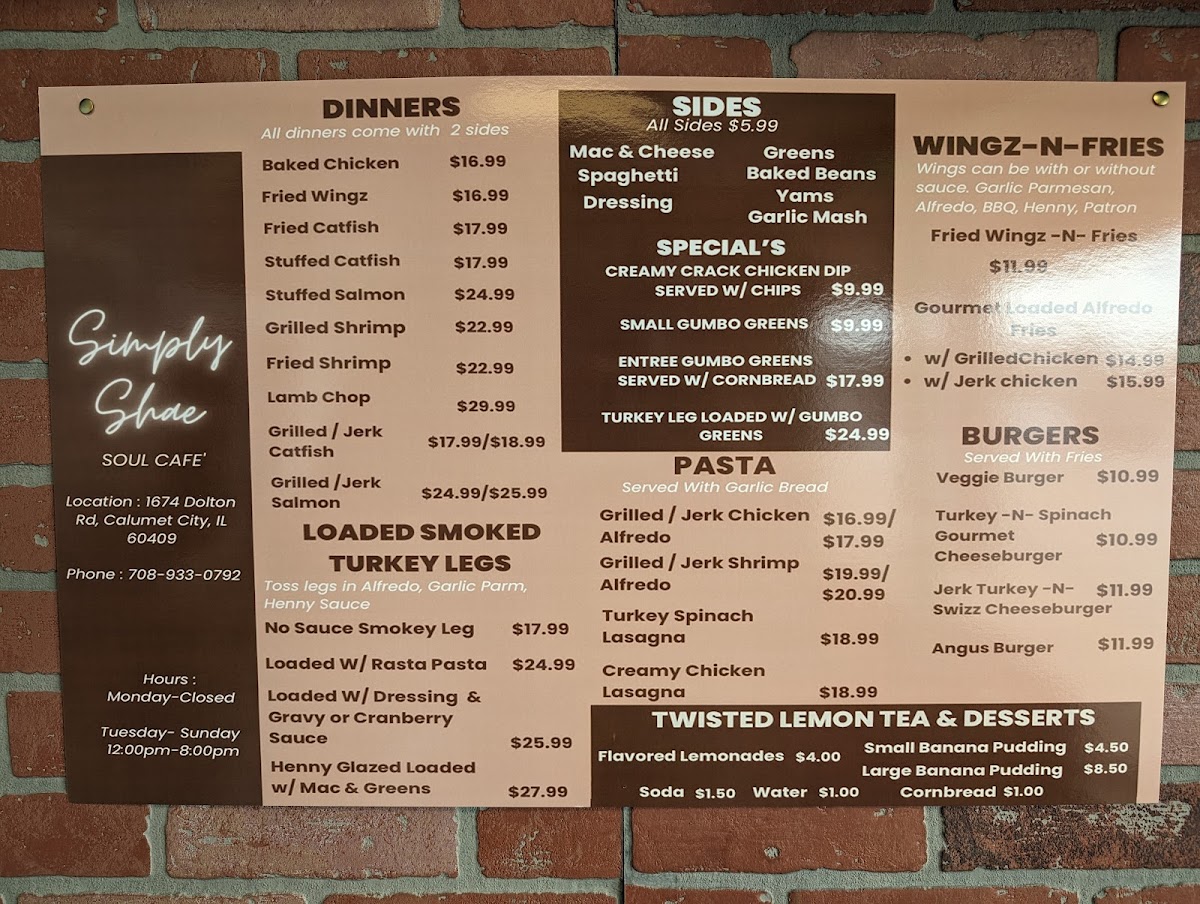 Simply
Shae
SOUL CAFE'
Location : 1674 Dolton
Rd, Calumet City, IL
60409
Phone : 708-933-0792
Hours :
Monday-Closed
Tuesday- Sunday
12:00pm-8:00pm
DINNERS
All dinners come with 2 sides
Baked Chicken $16.99
Fried Wingz $16.99
Fried Catfish $17.99
Stuffed Catfish $17.99
Stuffed Salmon $24.99
Grilled Shrimp $22.99
Fried Shrimp $22.99
Lamb Chop $29.99
Grilled / Jerk
Catfish $17.99/$18.99
Grilled /Jerk
Salmon $24.99/$25.99
LOADED SMOKED
TURKEY LEGS
Toss legs in Alfredo, Garlic Parm,
Henny Sauce
No Sauce Smokey Leg $17.99
Loaded W/ Rasta Pasta $24.99
Loaded W/ Dressing &
Gravy or Cranberry
Sauce $25.99
Henny Glazed Loaded
w/ Mac & Greens $27.99
SIDES
All Sides $5.99
Mac & Cheese Greens
Spaghetti Baked Beans
Dressing Yams
Garlic Mash
SPECIAL'S
CREAMY CRACK CHICKEN DIP
SERVED W/ CHIPS $9.99
SMALL GUMBO GREENS $9.99
ENTREE GUMBO GREENS
SERVED W/ CORNBREAD $17.99
TURKEY LEG LOADED W/ GUMBO
GREENS $24.99
PASTA
Served With Garlic Bread
Grilled / Jerk Chicken $16.99/
Alfredo $17.99
Grilled / Jerk Shrimp $19.99/
Alfredo $20.99
Turkey Spinach
Lasagna $18.99
Creamy Chicken
Lasagna $18.99
WINGZ-N-FRIES
Wings can be with or without
sauce. Garlic Parmesan,
Alfredo, BBQ, Henny, Patron
Fried Wingz -N- Fries
$11.99
Gourmet Loaded Alfredo
Fries
• w/ GrilledChicken $14.99
• w/ Jerk chicken $15.99
BURGERS
Served With Fries
Veggie Burger $10.99
Turkey -N- Spinach
Gourmet $10.99
Cheeseburger
Jerk Turkey -N- $11.99
Swizz Cheeseburger
Angus Burger $11.99
TWISTED LEMON TEA & DESSERTS
Flavored Lemonades $4.00 Small Banana Pudding $4.50
Large Banana Pudding $8.50
Soda $1.50 Water $1.00 Cornbread $1.00